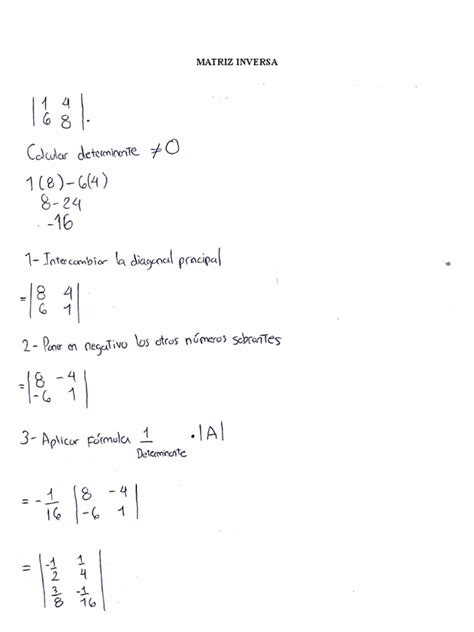 MATRIZ INVERSA
|1 4|
|6 8|.
Calcular determinante ≠0
1(8)-6(4)
8-24
-16
1- Intercambiar la diagonal principal
=|8 4|
|6 1|
2- Poner en negativo los otros números sobrantes
=|8 -4|
|-6 1|
3- Aplicar fórmula 1/Determinante .|A|
= -1/16 |8 -4|
|-6 1|
= |-1/2 1/4|
|3/8 -1/16|